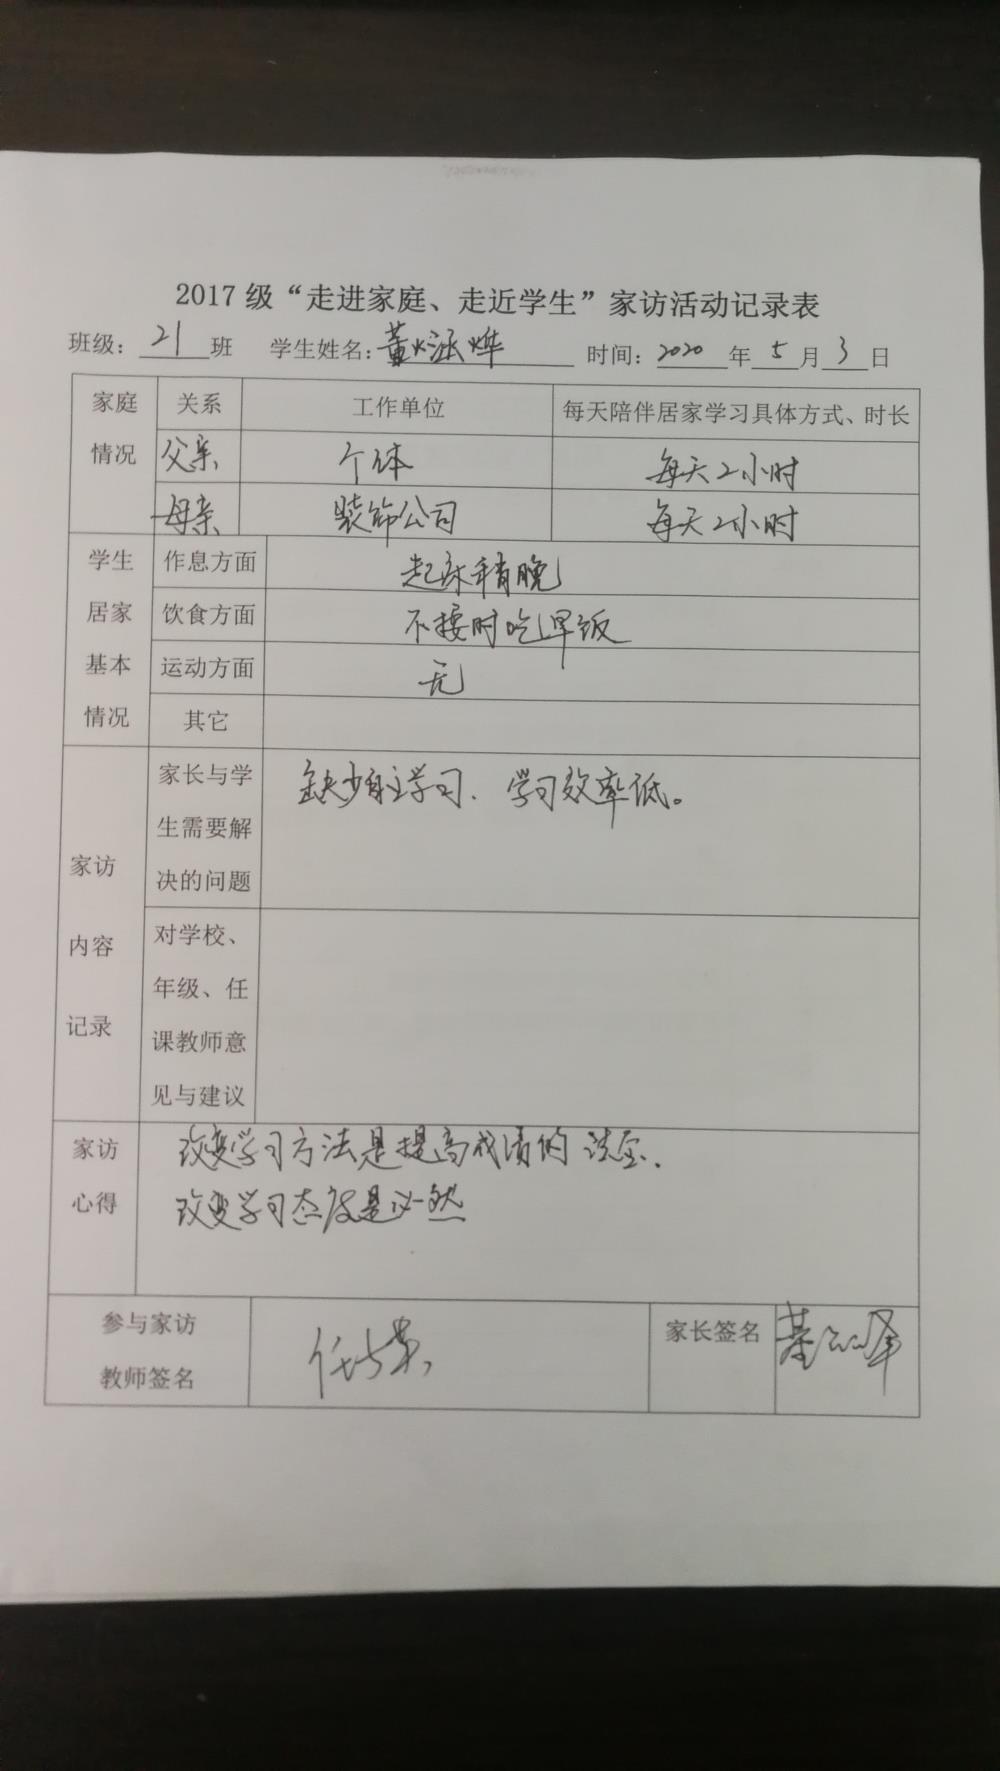 2017级“走进家庭、走近学生”家访活动记录表
班级：21班 学生姓名：董涵烨 时间：2020年5月3日
家庭情况 关系 工作单位 每天陪伴居家学习具体方式、时长
父亲 个体 每天2小时
母亲 装饰公司 每天2小时
学生居家基本情况 作息方面 起床稍晚
饮食方面 不按时吃早饭
运动方面 无
其它
家访内容记录
家长与学
生需要解
决的问题
缺少自主学习、学习效率低。
对学校、
年级、任
课教师意
见与建议
家访
心得
改变学习方法是提高成绩的法宝、
改变学习态度是必然
参与家访
教师签名
家长签名